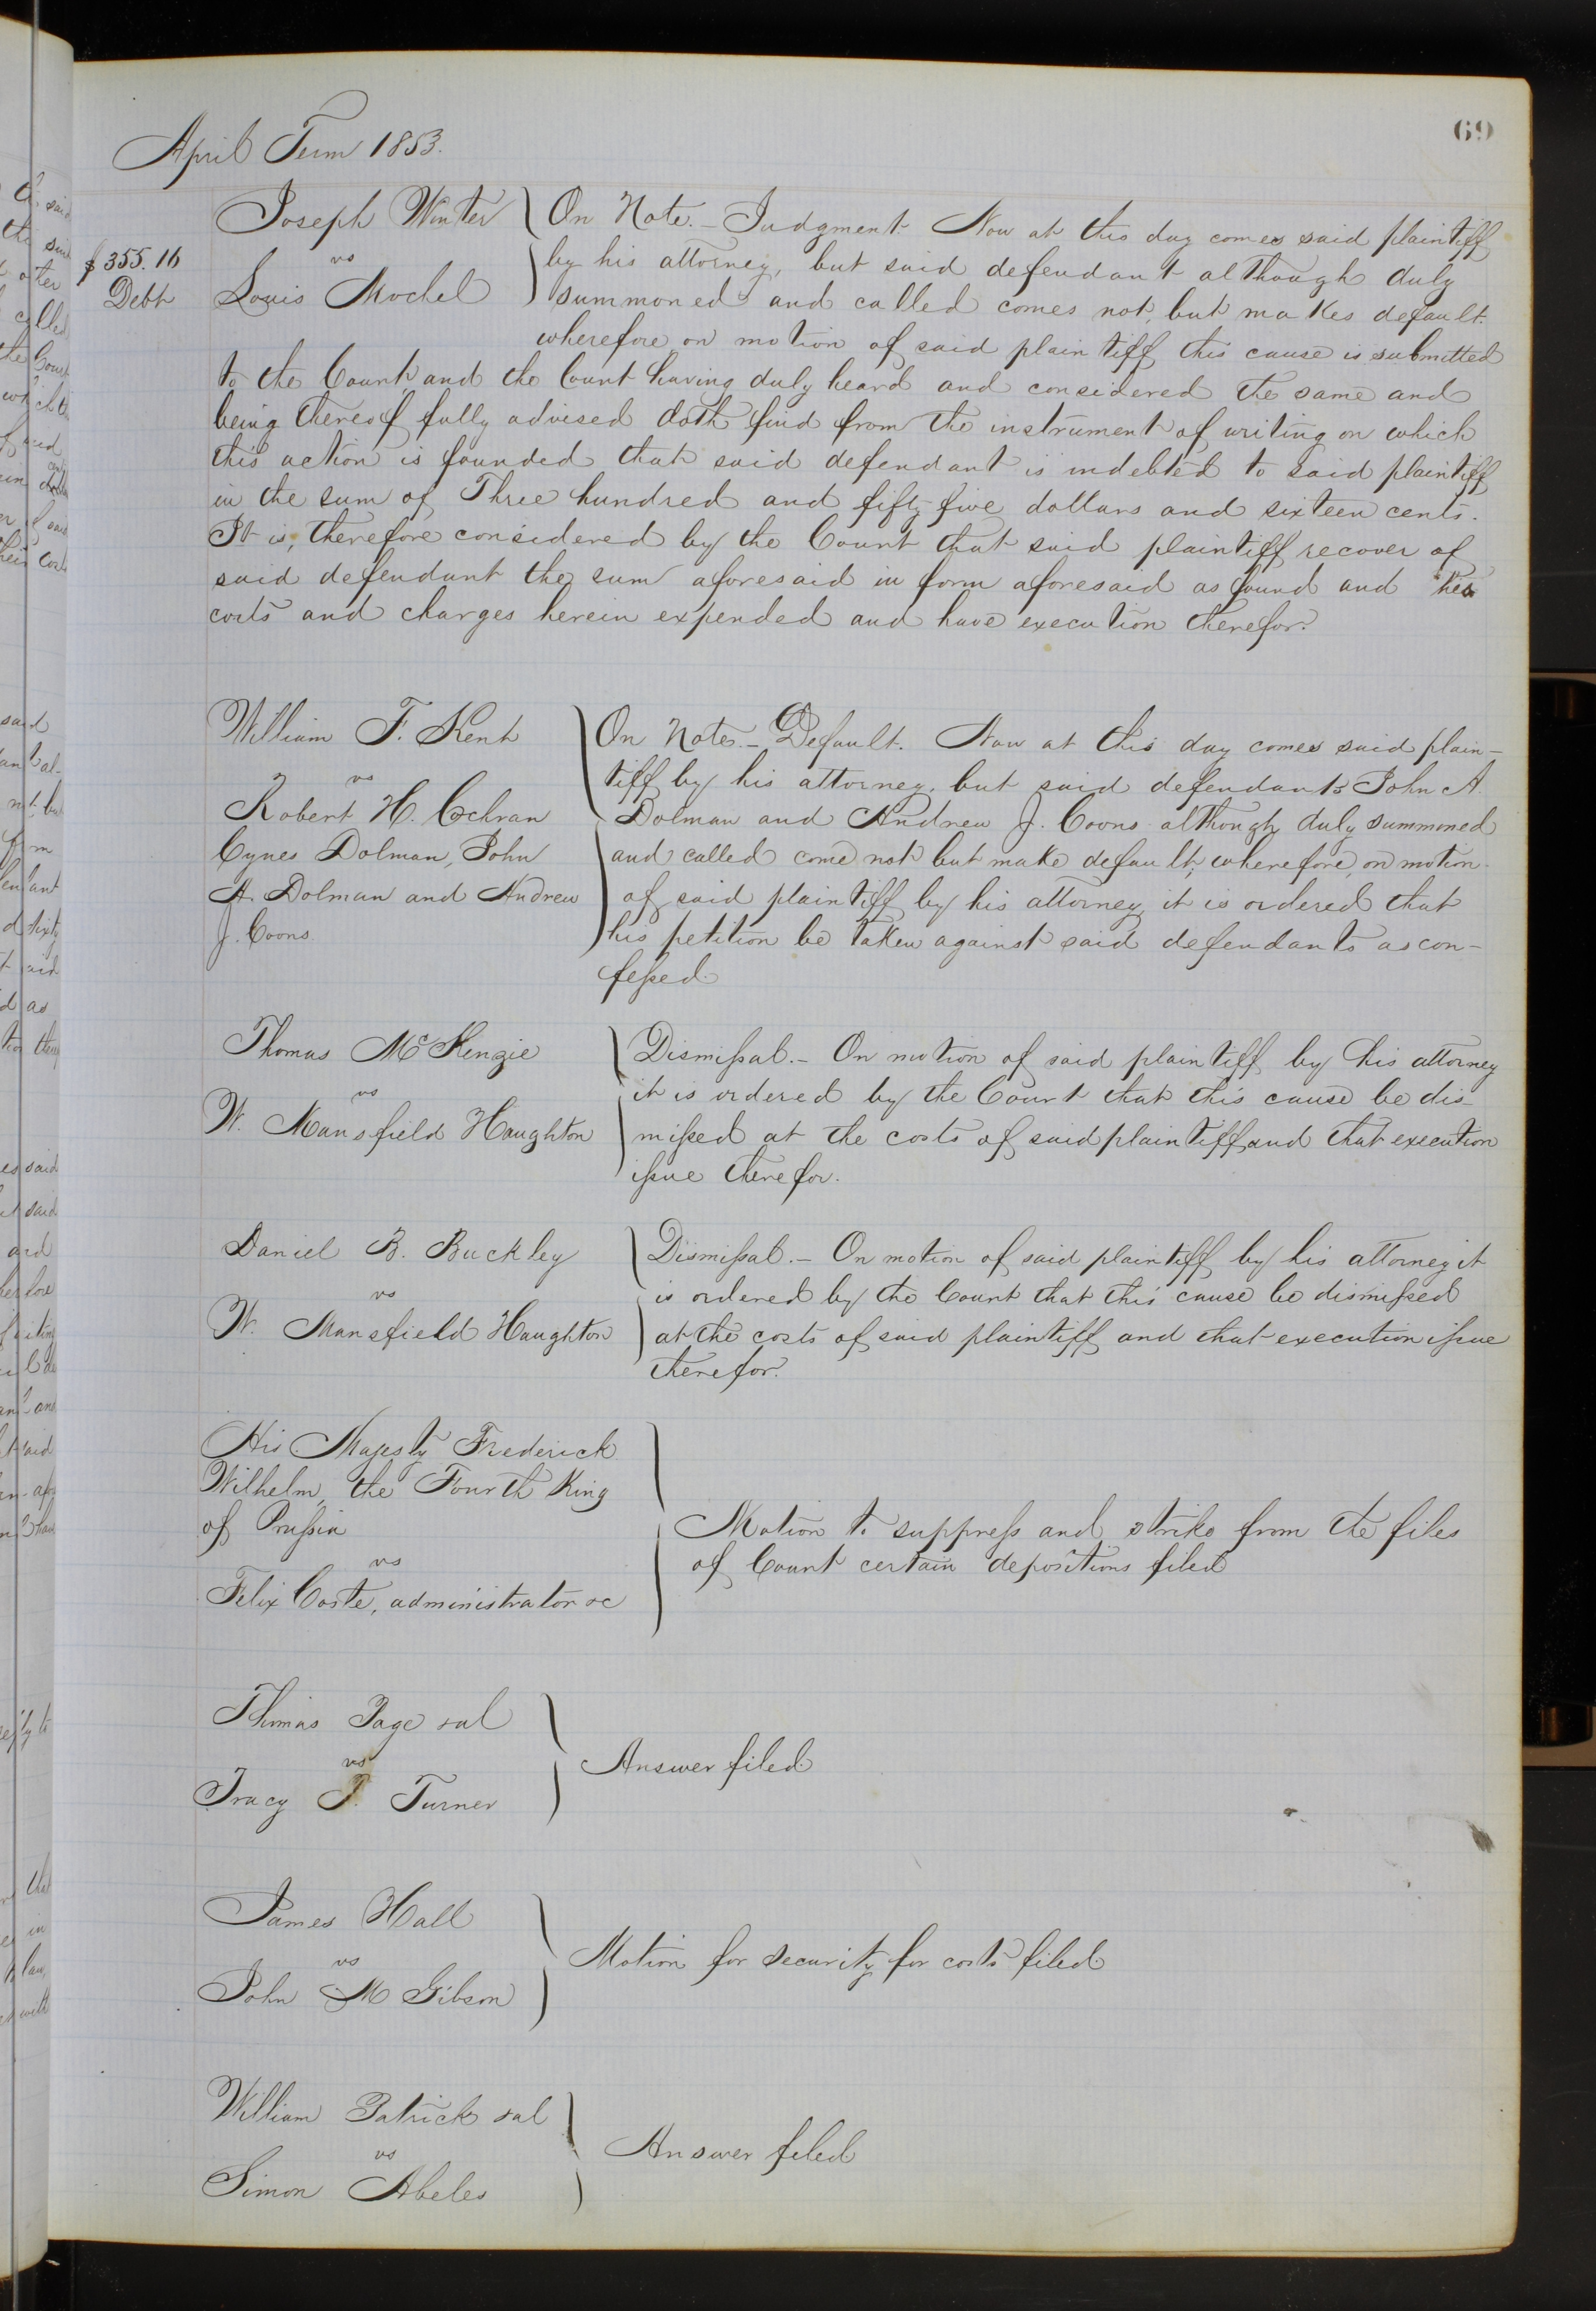 69
April Term 1853.
Joseph Winter
vs
Louis Mochel
$355.16
Debt
On Note. – Judgment. Now at this day comes said plaintiff
by his attorney, but said defendant although duly
summoned and called comes not, but makes default.
wherefore on motion of said plaintiff this cause is submitted
to the Court and the Court having duly heard and considered the same and
being thereof fully advised doth find from the instrument of writing on which
this action is founded that said defendant is indebted to said plaintiff
in the sum of Three hundred and fifty five dollars and sixteen cents.
It is, therefore considered by the Court that said plaintiff recover of
said defendant the sum aforesaid in form aforesaid as found and his
costs and charges herein expended and have execution therefor.
William F. Kent
vs
Robert H. Cochran
Cynes Dolman, John
A. Dolman and Andrew
J. Coons.
On Notes. – Default. Now at this day comes said plain-
tiff by his attorney, but said defendants John A.
Dolman and Andrew J. Coons although duly summoned
and called come not but make default; wherefore, on motion
of said plaintiff by his attorney, it is ordered that
his petition be taken against said defendants as con-
feſsed.
Thomas McKenzie
vs
W. Mansfield Haughton
Dismiſsal. – On motion of said plaintiff by his attorney
it is ordered by the Court that this cause be dis-
miſsed at the costs of said plaintiff and that execution
iſsue therefor.
Daniel B. Buckley
vs
W. Mansfield Haughton
Dismiſsal. – On motion of said plaintiff by his attorney it
is ordered by the Court that this cause be dismiſsed
at the costs of said plaintiff and that execution iſsue
therefor.
His Majesty Frederick
Wilhelm, the Fourth King
of Pruſsia
vs
Felix Coste, administrator &c
Motion to suppreſs and strike from the files
of Court certain depositions filed
Thomas Page &al
vs
Tracy P. Turner
Answer filed.
James Hall
vs
John M Gibson
Motion for security for costs filed
William Patrick &al
vs
Simon Abeles
Answer filed